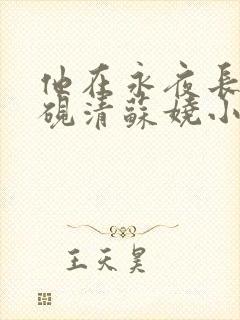 他在永夜長
硯清蘇嬈小
王天昊